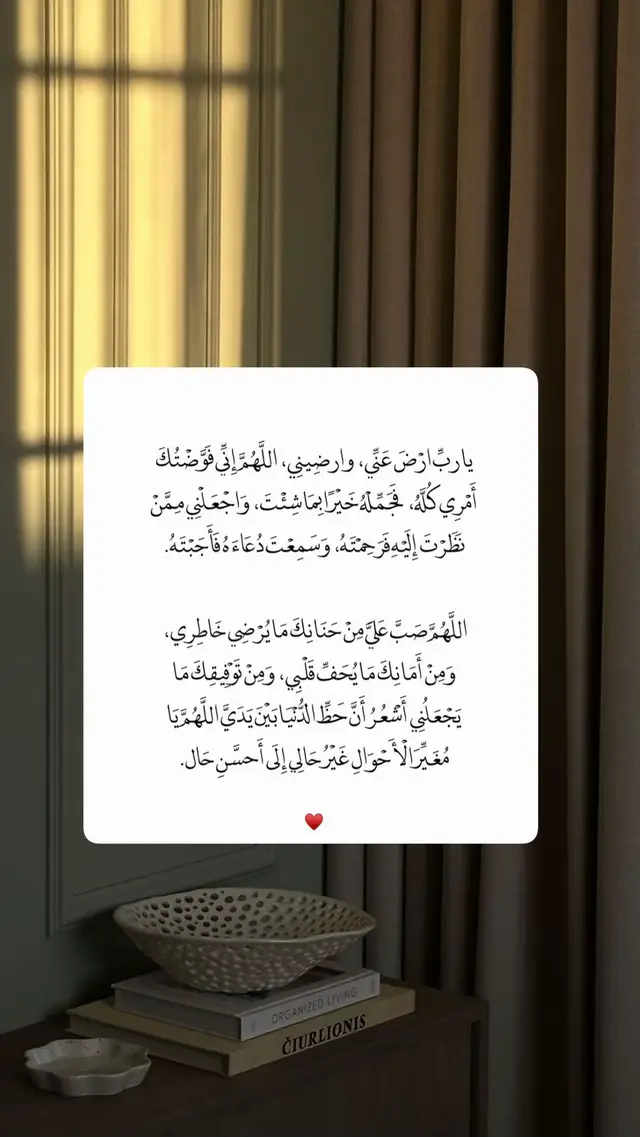 يا ربِّ ارْضَ عَنِّي، وارضِيني، اللَّهُمَّ إِنِّي فَوَّضْتُكَ
أَمْرِي كُلَّهُ، فَجَمِّلْهُ خَيْرًا بِمَا شِئْتَ، وَاجْعَلْنِي مِمَّنْ
نَظَرْتَ إِلَيْهِ فَرَحِمْتَهُ، وَسَمِعْتَ دُعَاءَهُ فَأَجَبْتَهُ.
اللَّهُمَّ صَبَّ عَلَيَّ مِنْ حَنَانِكَ مَا يُرْضِي خَاطِرِي،
وَمِنْ أَمَانِكَ مَا يُحَفِّ قَلْبِي، وَمِنْ تَوْفِيقِكَ مَا
يَجْعَلُنِي أَشْعُرُ أَنَّ حَظِّ الدُّنْيَا بَيْنَ يَدَيَّ اللَّهُمَّ يَا
مُغَيِّرَ الْأَحْوَالِ غَيْرُ حَالِي إِلَى أَحسَّنِ حَال.
♥️
ORGANIZED LIVING
ČIURLIONIS